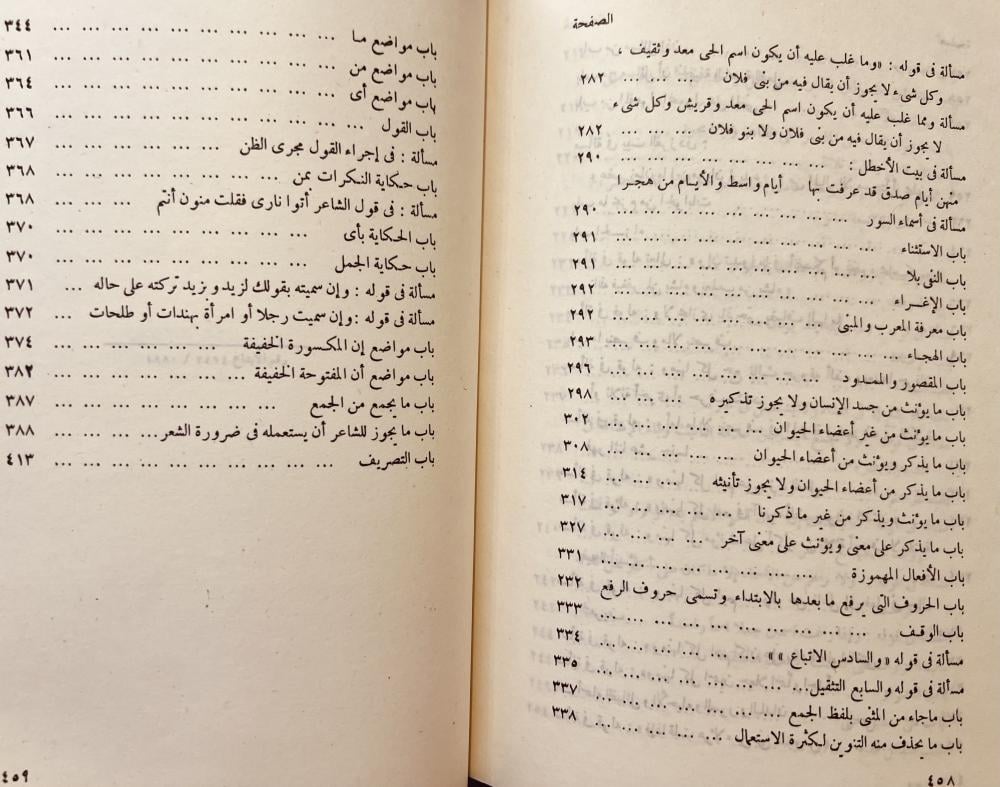 الصفحة
مسألة فى قوله : «وما غلب عليه أن يكون اسم الحى معد وثقيف ،
وكل شىء لا يجوز أن يقال فيه من بنى فلان ... ... ... ٢٨٢
مسألة ومما غلب عليه أن يكون اسم الحى معد وقريش وكل شىء
لا يجوز أن يقال فيه من بنى فلان ولا بنو فلان ... ... ... ٢٨٢
مسألة فى بيت الأخطل : ... ... ... ... ... ... ... ... ٢٩٠
منهن أيام صدق قد عرفت بها أيام واسط والأيـام من هجـرا
مسألة فى أسماء السور ... ... ... ... ... ... ... ... ٢٩٠
باب الاستثناء ... ... ... ... ... ... ... ... ... ٢٩١
باب النفى بلا ... ... ... ... ... ... ... ... ... ٢٩١
باب الإغـــراء ... ... ... ... ... ... ... ... ... ٢٩٢
باب معرفة المعرب والمبنى ... ... ... ... ... ... ... ٢٩٢
باب الهجـاء ... ... ... ... ... ... ... ... ... ٢٩٣
باب المقصور والممـدود ... ... ... ... ... ... ... ٢٩٦
باب ما يؤنث من جسد الإنسان ولا يجوز تذكيره ... ... ... ٢٩٨
باب ما يؤنث من غير أعضاء الحيوان ... ... ... ... ... ٣٠٢
باب ما يذكر ويؤنث من أعضاء الحيوان ... ... ... ... ٣٠٨
باب ما يذكر من أعضاء الحيوان ولا يجوز تأنيثه ... ... ... ٣١٤
باب ما يؤنث ويذكر من غير ما ذكرنا ... ... ... ... ٣١٧
باب ما يذكر على معنى ويؤنث على معنى آخر ... ... ... ٣٢٧
باب الأفعال المهموزة ... ... ... ... ... ... ... ٣٣١
باب الحروف التى يرفع ما بعدها بالابتداء وتسمى حروف الرفع ٢٣٢
باب الوقـف ... ... ... ... ... ... ... ... ٣٣٣
مسألة فى قوله «والسادس الاتباع »» ... ... ... ... ... ٣٣٤
مسألة فى قوله والسابع التثقيل... ... ... ... ... ... ٣٣٥
باب ماجاء من المثنى بلفظ الجمع ... ... ... ... ... ٣٣٧
باب ما يحذف منه التنوين لكثرة الاستعمال ... ... ... ... ٣٣٨
٤٥٨
باب مواضع مـا ... ... ... ... ... ... ... ... ... ٣٤٤
باب مواضع من ... ... ... ... ... ... ... ... ... ٣٦١
باب مواضع أى ... ... ... ... ... ... ... ... ... ٣٦٤
باب القول ... ... ... ... ... ... ... ... ... ... ٣٦٦
مسألة : فى إجراء القول مجرى الظن ... ... ... ... ... ٣٦٧
باب حكاية النكرات بمن ... ... ... ... ... ... ... ٣٦٨
مسألة : فى قول الشاعر أتوا نارى فقلت منون أنتم ... ... ... ٣٦٨
باب الحكاية بأى ... ... ... ... ... ... ... ... ٣٧٠
باب حكاية الجمل ... ... ... ... ... ... ... ... ٣٧٠
مسألة فى قوله : وإن سميته بقولك لزيد وبزيد تركته على حاله ... ٣٧١
مسألة فى قوله : وإن سميت رجلا أو امرأة بهندات أو طلحات ... ٣٧٢
باب مواضع إن المكسورة الخفيفة ... ... ... ... ... ... ٣٧٤
باب مواضع أن المفتوحة الخفيفة ... ... ... ... ... ... ... ٣٨٢
باب ما يجمع من الجمع ... ... ... ... ... ... ... ٣٨٧
باب ما يجوز للشاعر أن يستعمله فى ضرورة الشعر... ... ... ... ٣٨٨
باب التصريف ... ... ... ... ... ... ... ... ... ٤١٣
٤٥٩